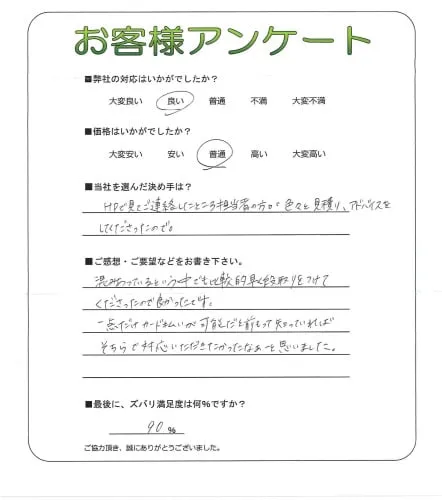 お客様アンケート
■弊社の対応はいかがでしたか？
大変良い 良い 普通 不満 大変不満
■価格はいかがでしたか？
大変安い 安い 普通 高い 大変高い
■当社を選んだ決め手は？
HPで見てご連絡したところ担当者の方が色々と見積り、アドバイスを
してくださったので。
■ご感想・ご要望などをお書き下さい。
混み合っているという中でも比較的早く段取りをつけて
くださったので良かったです。
一点だけカード払いが可能だと前もって知っていれば
そちらで対応いただきたかったなぁーと思いました。
■最後に、ズバリ満足度は何％ですか？
90 ％
ご協力頂き、誠にありがとうございました。